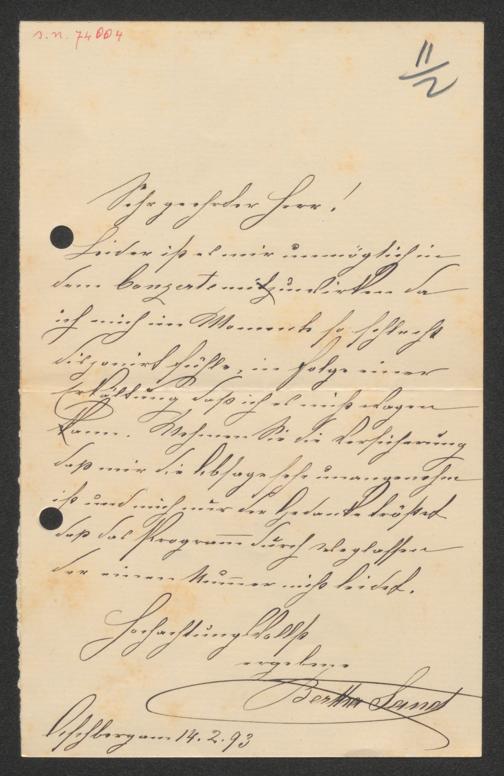 s.n. 74004
11/2
Sehr geehrter Herr!
Leider ist es mir unmöglich in
dem Conzerte mitzuwirken da
ich mich im Moment so schlecht
disponirt fühle, in Folge einer
Erkältung daß ich es nicht wagen
kann. Nehmen Sie die Versicherung
daß mir die Absage sehr unangenehm
ist und mich nur der Gedanke tröstet
daß das Programm durch Weglassen
der einen Nummer nicht leidet.
Hochachtungsvollst
ergebene
Bertha
14.2.93